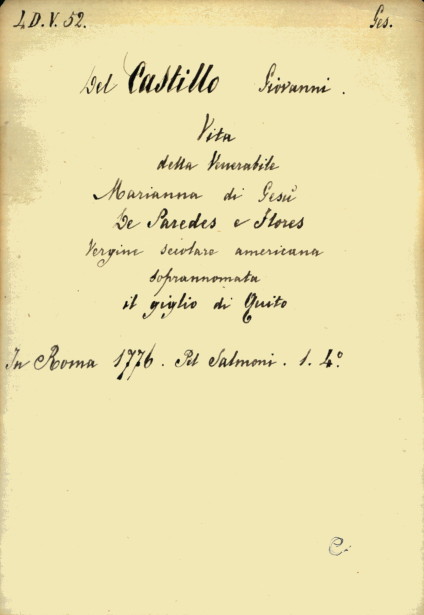 4 D. V. 52. Ges.
Del Castillo Giovanni.
Vita
della Venerabile
Marianna di Gesù
De Paredes e Flores
Vergine secolare americana
soprannomata
il giglio di Quito
In Roma 1776. Pel Salmoni. 1. 4°.
C.